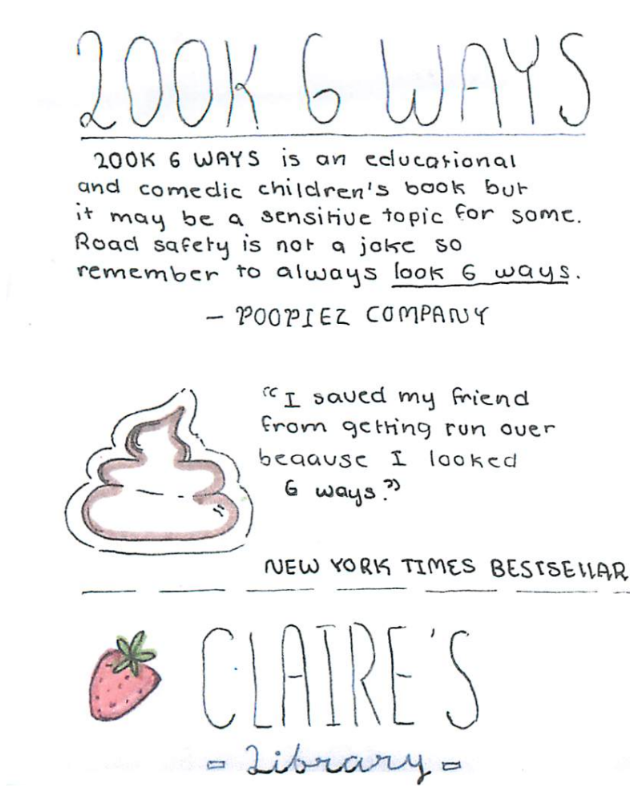 200K 6 WAYS
200K 6 WAYS is an educational
and comedic children's book but
it may be a sensitive topic for some.
Road safety is not a joke so
remember to always look 6 ways.
- POOPIEZ COMPANY
"I saved my friend
from getting run over
beaause I looked
6 ways."
NEW YORK TIMES BESTSELLAR
CLAIRE'S
Library